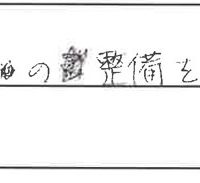 の整備を